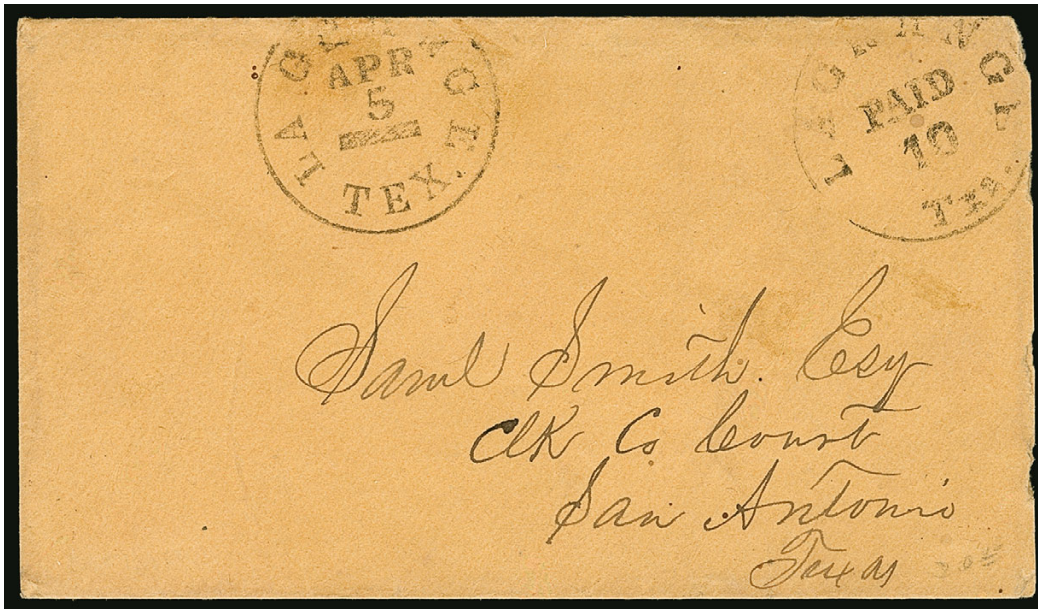 LA GRANGE
APR
5
TEX.
LAGRANGE
PAID
10
Tex.
Saml Smith Esq
Clk Co Court
San Antonio
Texas